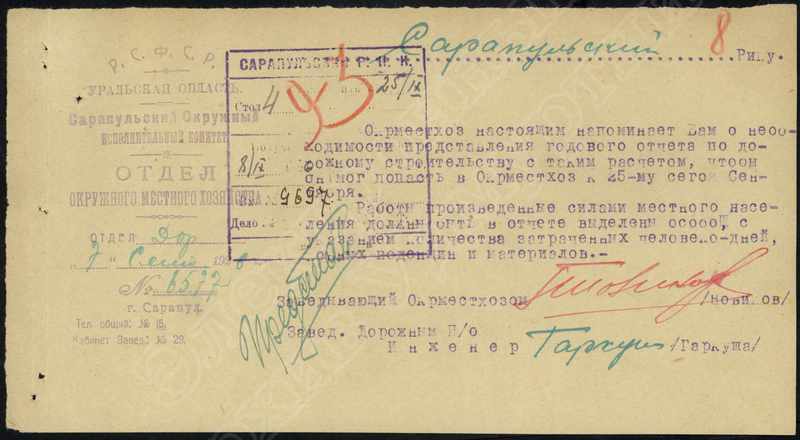 Р. С. Ф. С. Р.
УРАЛЬСКАЯ ОБЛАСТЬ.
Сарапульский Окружный
ИСПОЛНИТЕЛЬНЫЙ КОМИТЕТ
ОТДЕЛ
ОКРУЖНОГО МЕСТНОГО ХОЗЯЙСТВА
ОТДЕЛ Дор
"7" Сент 192
№ 6597
г. Сарапул.
Тел. общий: № 15.
Кабинет Завед: № 29.
САРАПУЛЬСКИЙ Р. И. К.
Стол 4
25/IX
8/IX
9697
Дело
93
Сарапульский 8 Рику.
Окрместхоз настоящим напоминает Вам о необ-
ходимости представления годового отчета по до-
рожному строительству с таким расчетом, чтобы
он мог попасть в Окрместхоз к 25-му сего Сен-
тября.
Работы произведенные силами местного насе-
ления должны быть в отчете выделены особо, с
указанием количества затраченных человеко-дней,
конных поденщин и материалов.-
Заведывающий Окрместхозом /Новиков/
Завед. Дорожным П/о
Инженер Гаркуша /Гаркуша/